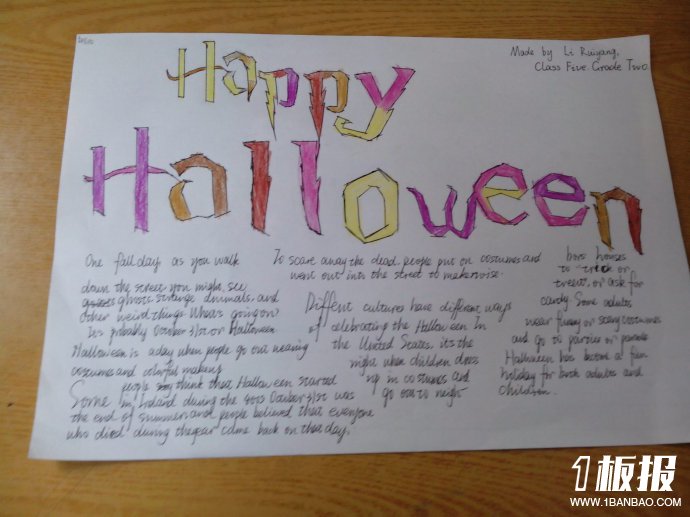 Happy
Halloween
Made by Li Ruiyang,
Class Five Grade Two.
One fall day as you walk
down the street, you might see
ghosts, animals, and
other weird things. What's going on?
Its probably October 31st or Halloween
Halloween is a day when people go out wearing
costumes and colorful makeup
Some people think that Halloween started
in Ireland during the October 31st was
the end of summer and people believed that everyone
who died during the year came back on that day.
To scare away the dead, people put on costumes and
went out into the street to make noise.
Diffent cultures have different ways
of celebrating the Halloween In
the United States, it's the
night when children dress
up in costumes and
go out to neigh
bors houses
to trick or
treat, or ask for
candy. Some adults
wear funny or scary costumes
and go to parties or parade
Halloween has become a fun
holiday for both adults and
children.
1板报
WWW.1BANBAO.COM